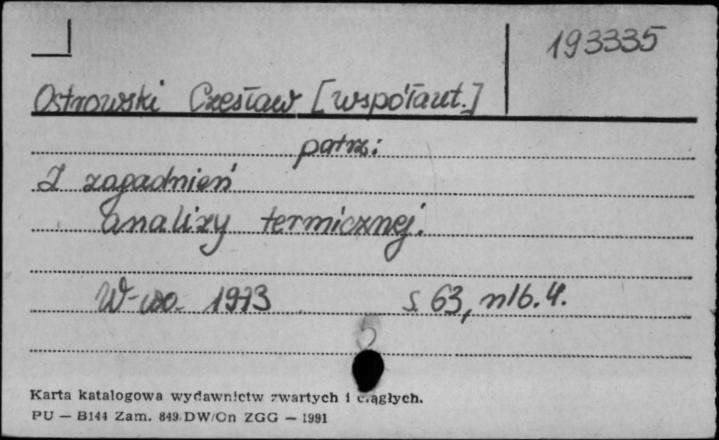 193335
Ostrowski Czesław [współaut.]
patrz:
Z zagadnień
analizy termicznej.
W-wa 1973 s. 63, nlb. 4.
Karta katalogowa wydawnictw zwartych i ciągłych.
PU — B144 Zam. 849/DW/On ZGG — 1991